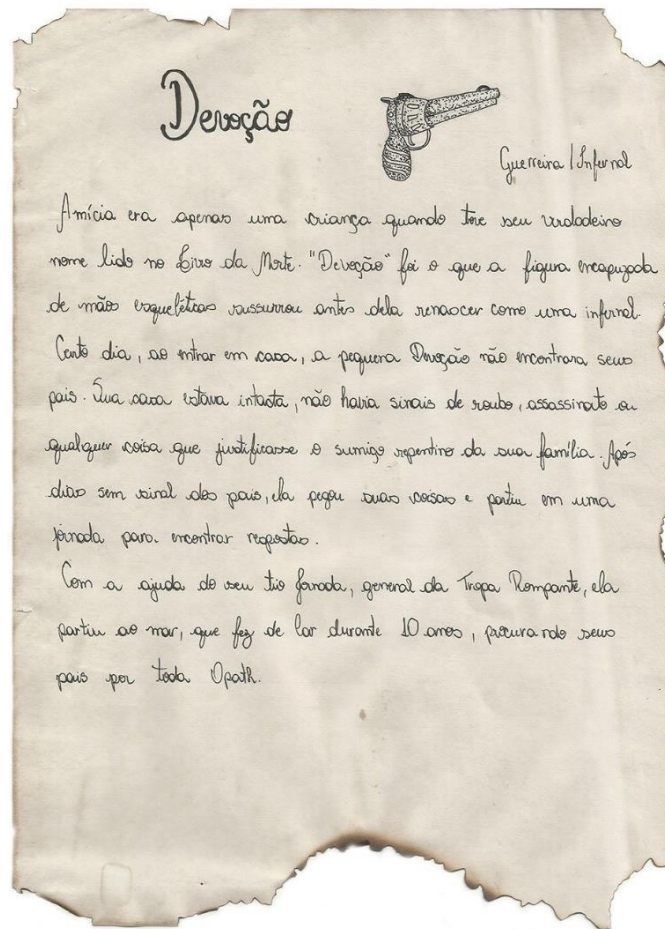 Devoção
Guerreira / Infernal
Amícia era apenas uma criança quando teve seu verdadeiro
nome lido no Livro da Morte. "Devoção" foi o que a figura encapuzada
de mãos esqueléticas sussurrou antes dela renascer como uma infernal.
Certo dia, ao entrar em casa, a pequena Devoção não encontrara seus
pais. Sua casa estava intacta, não havia sinais de roubo, assassinato ou
qualquer coisa que justificasse o sumiço repentino da sua família. Após
dias sem sinal dos pais, ela pegou suas coisas e partiu em uma
jornada para encontrar respostas.
Com a ajuda do seu tio Jornada, general da Tropa Rompante, ela
partiu ao mar, que fez de lar durante 10 anos, procurando seus
pais por toda Opath.